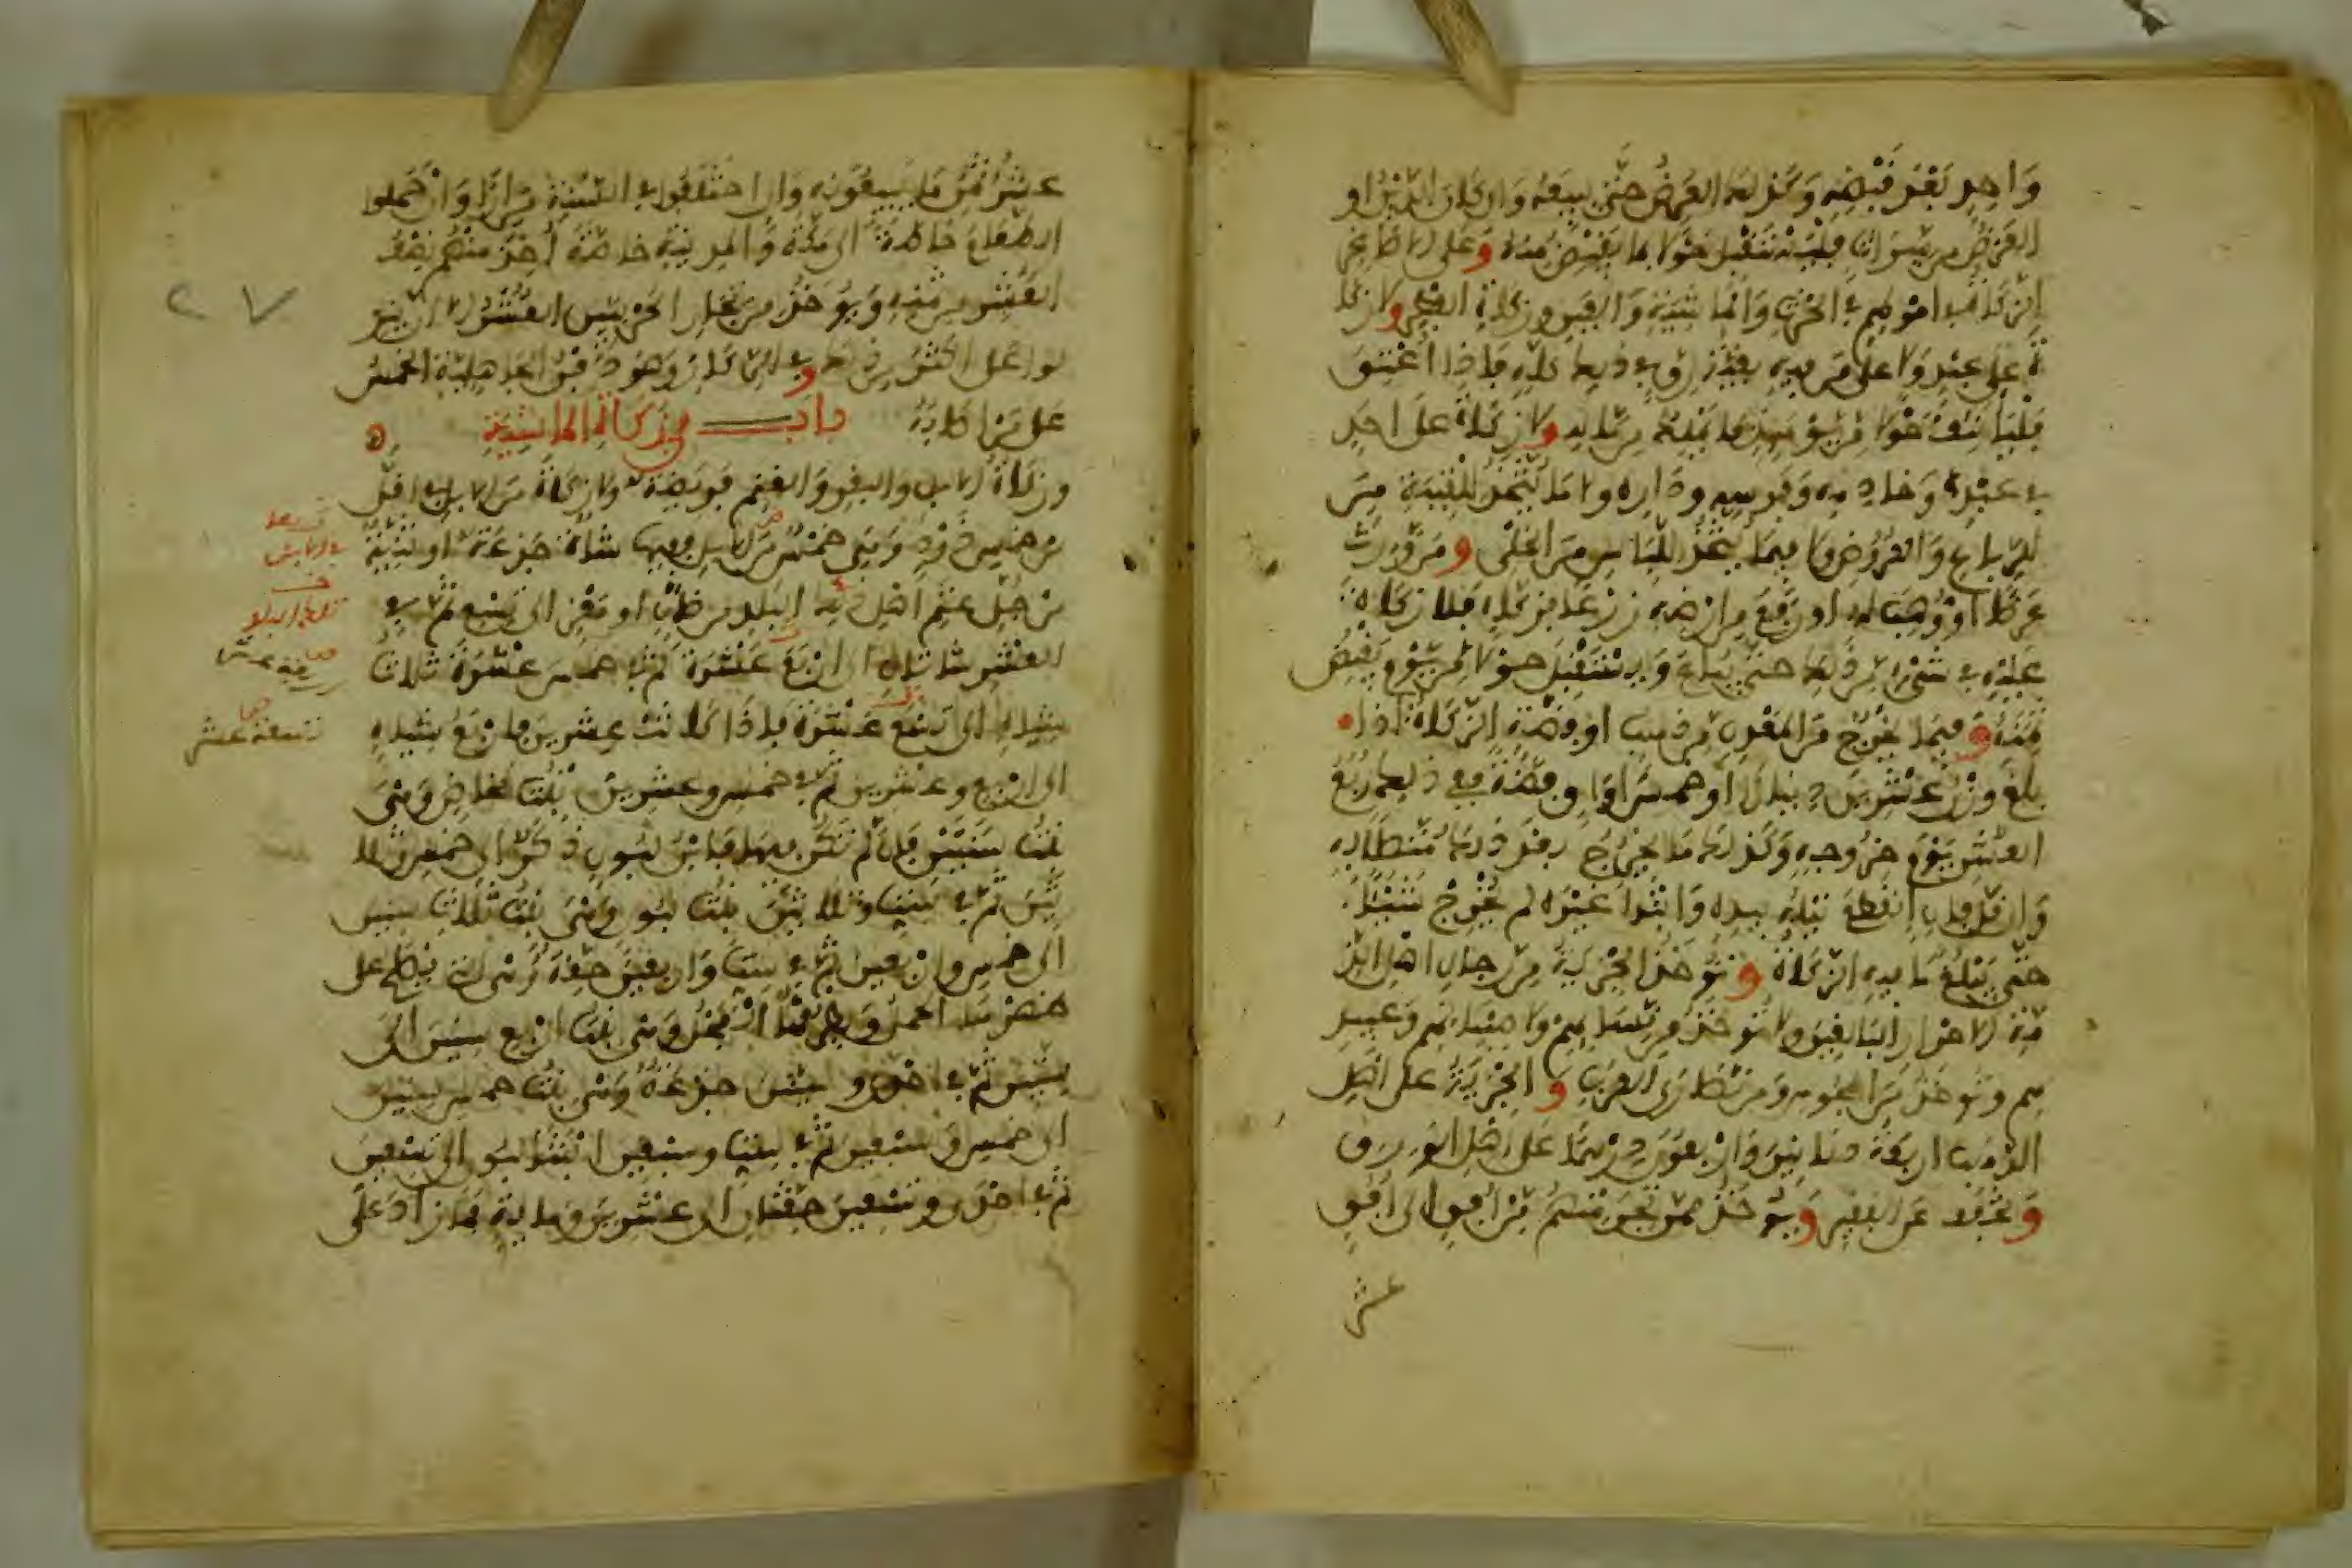 واحد بعد قبضه وكذلك العرض حتى يبيعه وان كان الدين او
العرض من ميراث فليستقبل حولا بما يقبض منه وعلى الاصاغر
الزكاة في اموالهم في الحرث والماشية والعين وزكاة الفطر ولا زكا
ة على عبد ولا على من فيه بقية رق في ذلك كله فاذا اعتق
فلياتنف حولا من يومئذ بما يملك من ماله ولا زكاة على احد
في عبده وخادمه وفرسه وداره وما يتخذ للقنية من
الرباع والعروض ولا فيما يتخذ للباس من الحلى ومن ورث
عرضا او وهب له او رفع من ارضه زرعا فزكاه فلا زكاة
عليه في شيء من ذلك حتى يباع ويستقبل حولا من يوم يقبض
ثمنه وفيما يخرج من المعدن من ذهب او فضة الزكاة اذا
بلغ وزن عشرين دينارا او خمس اواق فضة ففي ذلك ربع
العشر يوم خروجه وكذلك ما يخرج بعد ذلك متصلا به
وان قل فان انقطع نيله بيده وابتدا غيره لم يخرج شيئا
حتى يبلغ ما فيه الزكاة وتؤخذ الجزية من رجال اهل الذ
مة الاحرار البالغين ولا تؤخذ من نسائهم ولا صبيانهم وعبيد
هم وتؤخذ من المجوس ومن نصارى العرب والجزية على اهل
الذهب اربعة دنانير واربعون درهما على اهل الورق
ويخفف عن الفقير ويؤخذ ممن تجر منهم من افق الى افق
عشر
عشر ثمن ما يبيعونه وان اختلفوا في السنة مرارا وان حملوا
الطعام خاصة الى مكة والمدينة خاصة اخذ منهم نصف
العشر من ثمنه ويؤخذ من تجار الحربيين العشر الا ان ينز
لوا على اكثر من ذلك وفي الركاز وهو دفن الجاهلية الخمس
على من اصابه باب في زكاة الماشية
وزكاة الابل والبقر والغنم فريضة ولا زكاة من الابل في اقل
من خمس ذود وهي خمس من الابل ففيها شاة جذعة او ثنية
من جل غنم اهل ذلك البلد من ضان او معز الى تسع ثم في
العشر شاتان الى اربع عشرة ثم في خمس عشرة ثلاث
شياه الى تسع عشرة فاذا كانت عشرين فاربع شياه
الى اربع وعشرين ثم في خمس وعشرين بنت مخاض وهي
بنت سنتين فان لم تكن فيها فابن لبون ذكر الى خمس وثلا
ثين ثم في ست وثلاثين بنت لبون وهي بنت ثلاث سنين
الى خمس واربعين ثم في ست واربعين حقة وهي التي يصلح على
ظهرها الحمل وطرقها الفحل وهي بنت اربع سنين الى
ستين ثم في احدى وستين جذعة وهي بنت خمس سنين
الى خمس وسبعين ثم في ست وسبعين ابنتا لبون الى تسعين
ثم في احدى وتسعين حقتان الى عشرين ومائة فما زاد على
تسعة عشر
٢٧